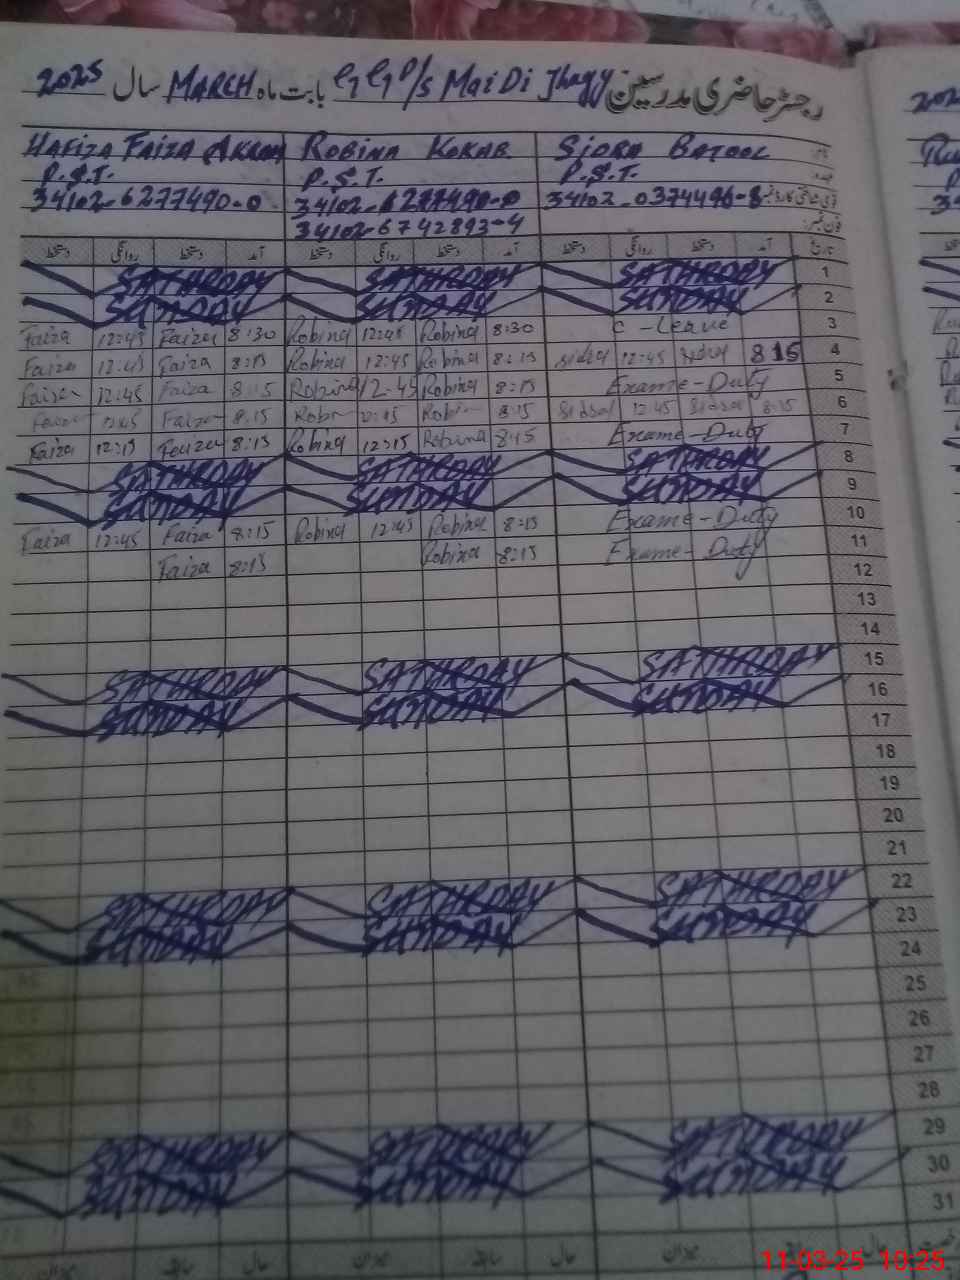 رجسٹر حاضری مدرسین GGP/S Mai Di Jhugy بابت ماہ MARCH سال 2025
HAFIZA FAIZA AKRAM ROBINA KOKAB SIDRA BATOOL
P.S.T. P.S.T. P.S.T.
34102-6277490-0 34102-6277490-0 34102-0374496-8
34102-6742893-4 فون نمبر:
دستخط روانگی دستخط آمد دستخط روانگی دستخط آمد دستخط روانگی دستخط آمد تاریخ
SATHRDAY SATHRDAY SATHRDAY 1
SUNDAY SUNDAY SUNDAY 2
Faiza 12:45 Faiza 8:30 Robina 12:45 Robina 8:30 C-Leave 3
Faiza 12:45 Faiza 8:15 Robina 12:45 Robina 8:15 Sidra 12:45 Sidra 8 15 4
Faiza 12:45 Faiza 8:15 Robina 12-45 Robina 8:15 Exame-Duty 5
Faiza 12:45 Faiza 8:15 Robina 12:45 Robina 8:15 Sidra 12:45 Sidra 8:15 6
Faiza 12:15 Faiza 8:15 Robina 12:15 Robina 8:15 Exame-Duty 7
SATHRDAY SATHRDAY SATHRDAY 8
SUNDAY SUNDAY SUNDAY 9
Faiza 12:45 Faiza 8:15 Robina 12:45 Robina 8:15 Exame-Duty 10
Faiza 8:15 Robina 8:15 Exame-Duty 11
12
13
14
SATHRDAY SATHRDAY SATHRDAY 15
SUNDAY SUNDAY SUNDAY 16
17
18
19
20
21
SATHRDAY SATHRDAY SATHRDAY 22
SUNDAY SUNDAY SUNDAY 23
24
25
26
27
28
SATHRDAY SATHRDAY SATHRDAY 29
SUNDAY SUNDAY SUNDAY 30
31
میزان سابقہ حال میزان سابقہ حال میزان سابقہ حال
11-03-25 10:25